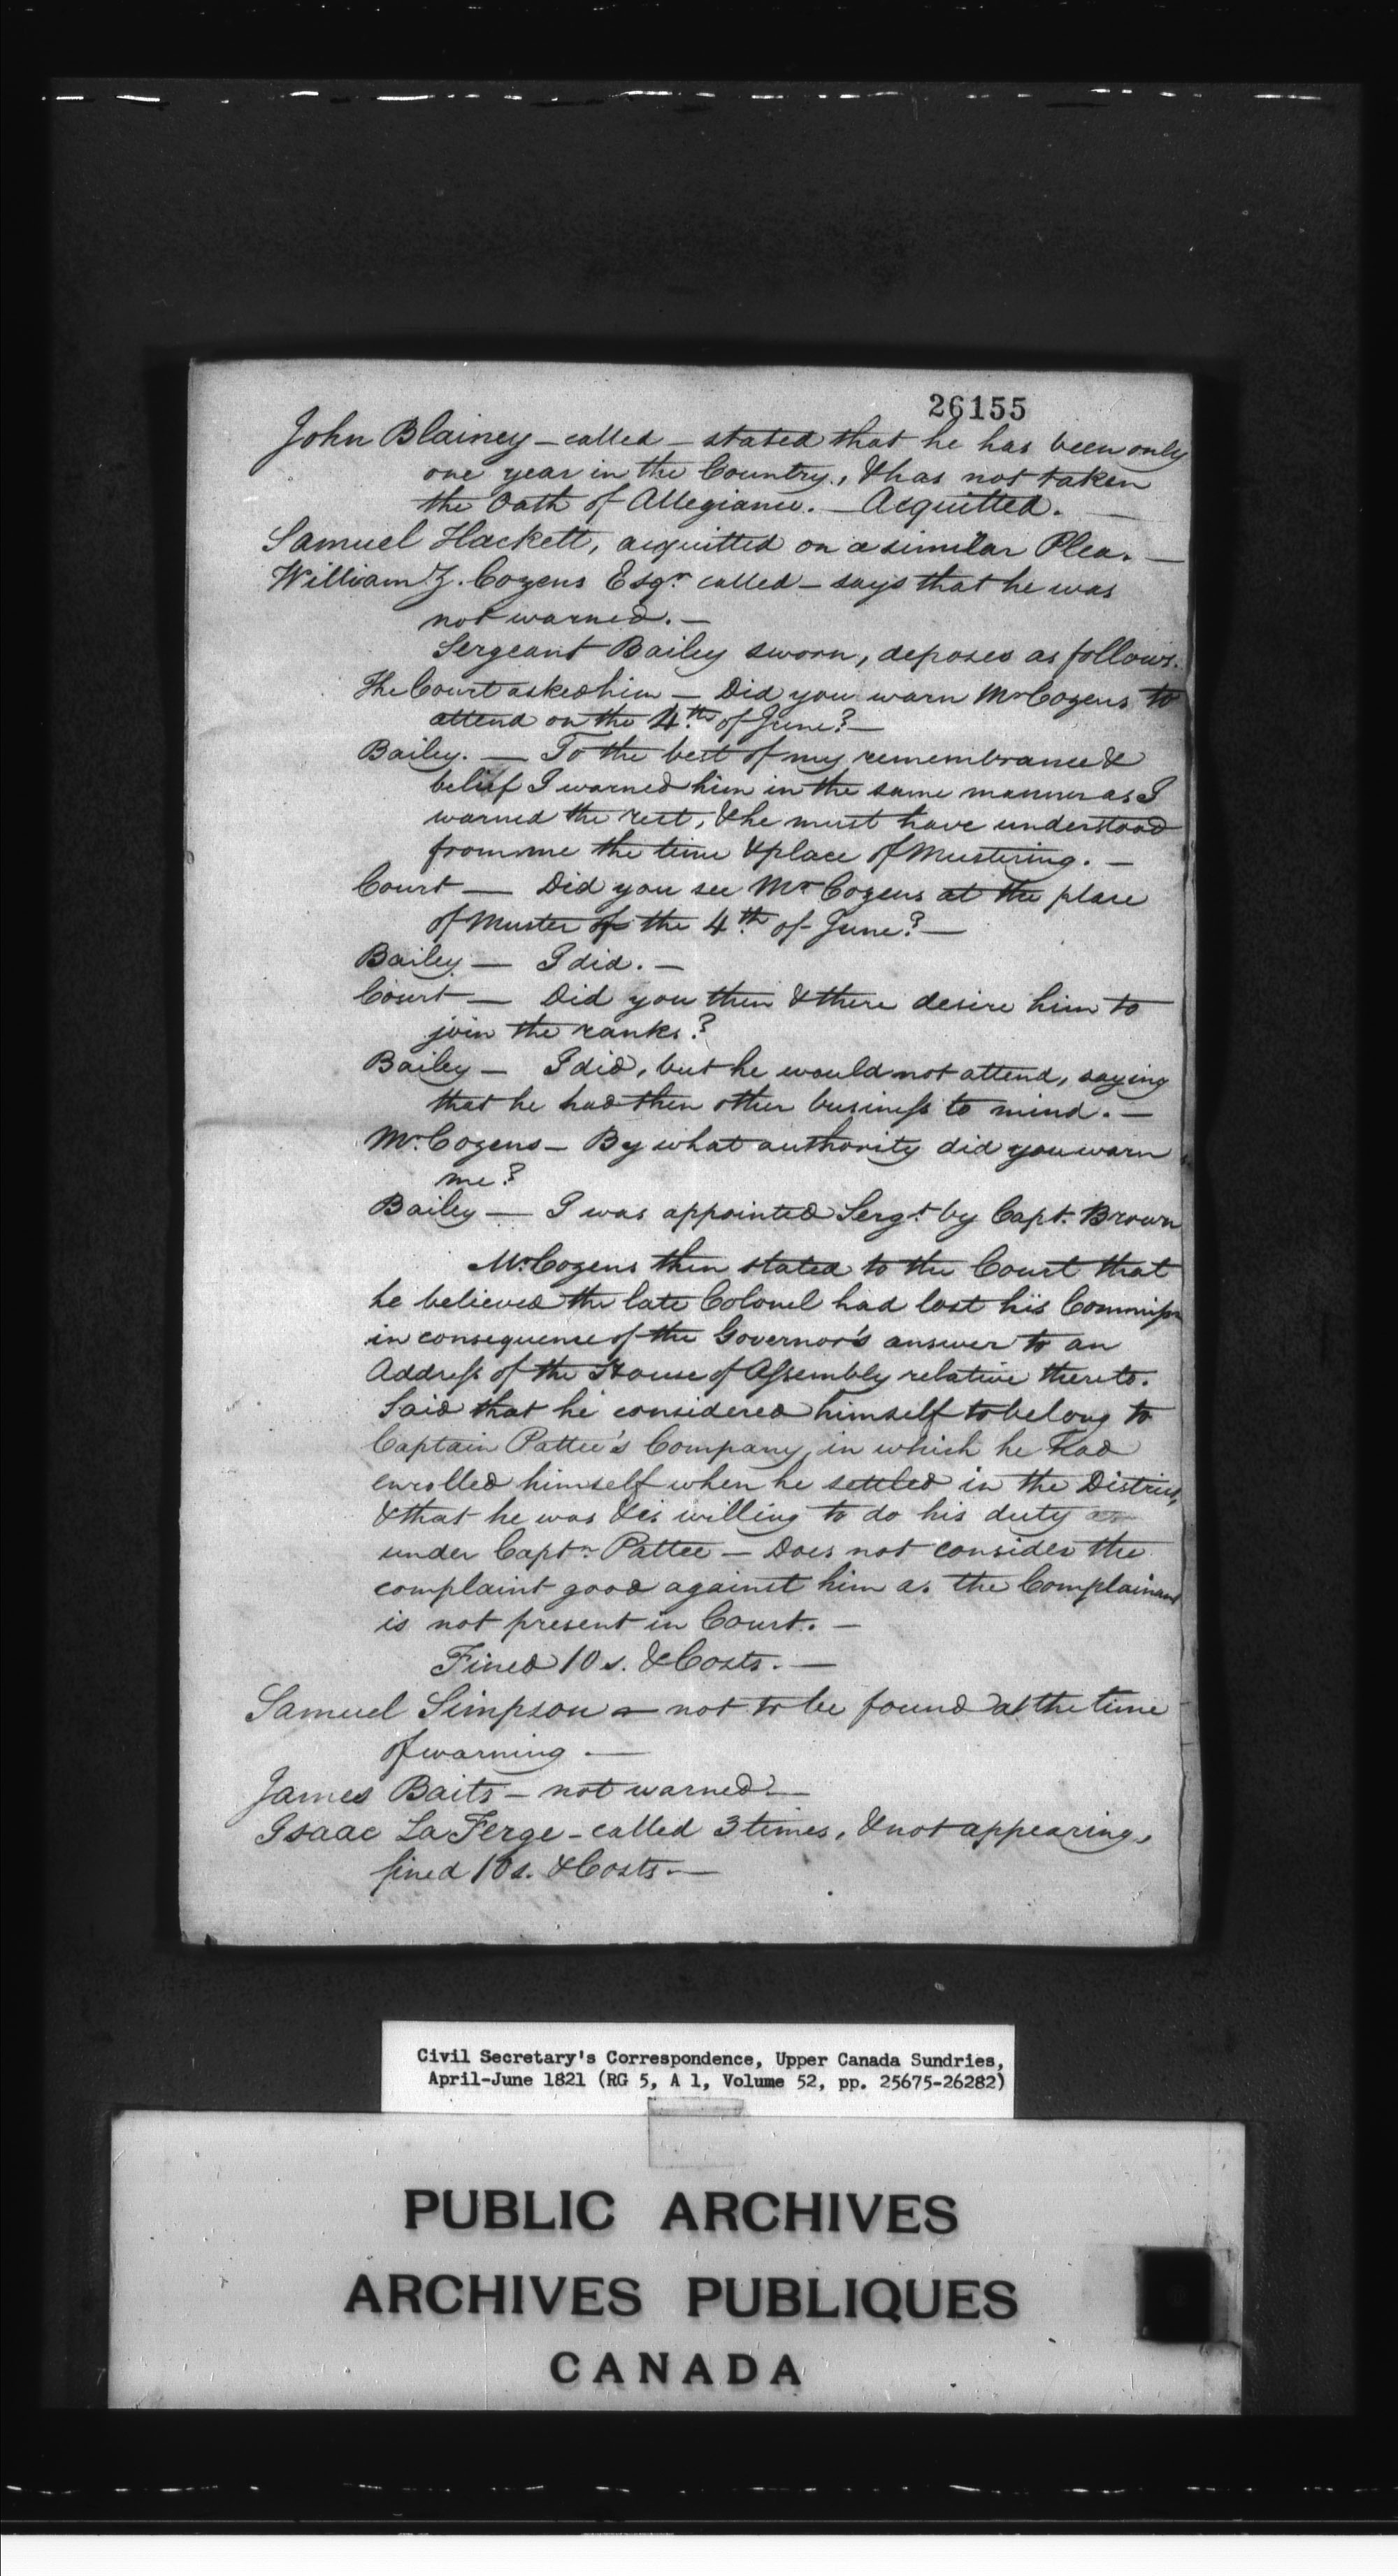 26155
John Blainey – called – stated that he has been only
one year in the Country, & has not taken
the Oath of Allegiance. – Acquitted. –
Samuel Hackett, acquitted on a similar Plea. –
William Z. Cozens Esqr. called – says that he was
not warned. –
Sergeant Bailey sworn, deposes as follows.
The Court asked him – Did you warn Mr Cozens to
attend on the 4th of June? –
Bailey. – To the best of my remembrance &
belief I warned him in the same manner as I
warned the rest, & he must have understood
from me the time & place of Mustering. –
Court – Did you see Mr Cozens at the place
of Muster of the 4th of June? –
Bailey – I did. –
Court – Did you then & there desire him to
join the ranks?
Bailey – I did, but he would not attend, saying
that he had then other business to mind. –
Mr. Cozens – By what authority did you warn
me?
Bailey – I was appointed Sergt. by Capt. Brown
Mr. Cozens then stated to the Court that
he believed the late Colonel had lost his Commissn
in consequence of the Governor's answer to an
Address of the House of Assembly relative thereto.
Said that he considered himself to belong to
Captain Pattee's Company, in which he had
enrolled himself when he settled in the District,
& that he was & is willing to do his duty
under Captn. Pattee – Does not consider the
complaint good against him as the Complainant
is not present in Court. –
Fined 10 s. & Costs. –
Samuel Simpson – not to be found at the time
of warning. –
James Baits – not warned. –
Isaac La Ferge – called 3 times, & not appearing,
fined 10 s. & Costs. –
Civil Secretary's Correspondence, Upper Canada Sundries,
April-June 1821 (RG 5, A 1, Volume 52, pp. 25675-26282)
PUBLIC ARCHIVES
ARCHIVES PUBLIQUES
CANADA